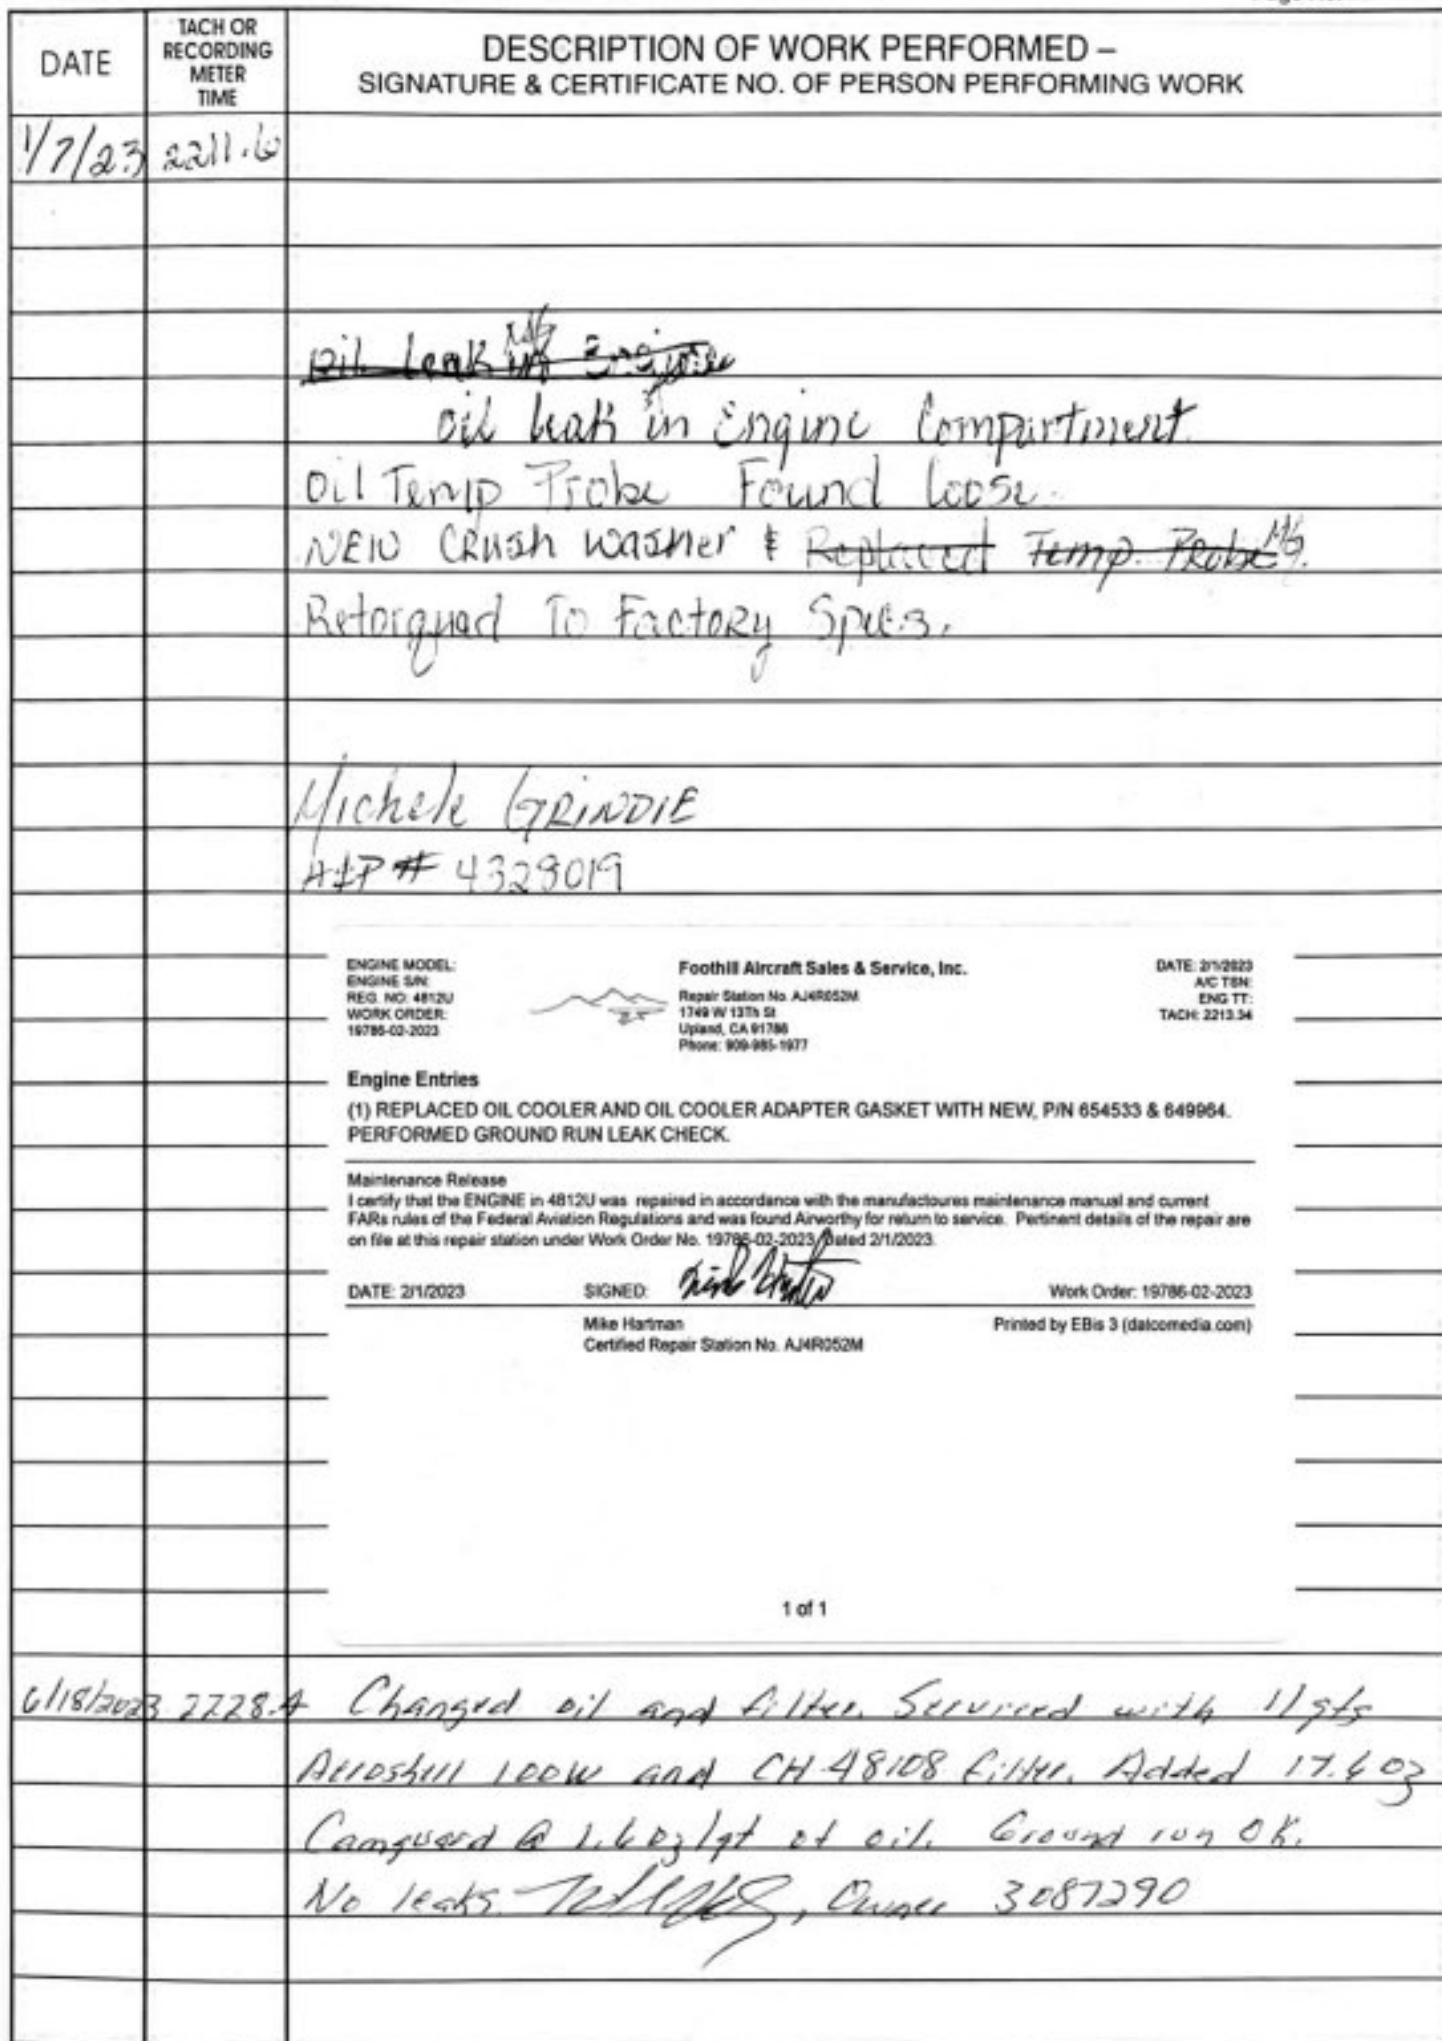 DATE
TACH OR
RECORDING
METER
TIME
DESCRIPTION OF WORK PERFORMED –
SIGNATURE & CERTIFICATE NO. OF PERSON PERFORMING WORK
1/7/23 2211.6
Oil Leak in Engine
MG
Oil leak in Engine Compartment.
Oil Temp Probe Found loose.
NEW CRUSH WASHER & Replaced Temp. Probe MG.
Retorqued To FACTORY Specs.
Michele GRINDLE
A&P # 4329019
ENGINE MODEL:
ENGINE S/N:
REG. NO: 4812U
WORK ORDER:
19786-02-2023
Foothill Aircraft Sales & Service, Inc.
Repair Station No. AJ4R052M
1749 W 13Th St
Upland, CA 91786
Phone: 909-985-1977
DATE: 2/1/2023
A/C TSN:
ENG TT:
TACH: 2213.34
Engine Entries
(1) REPLACED OIL COOLER AND OIL COOLER ADAPTER GASKET WITH NEW, P/N 654533 & 649964.
PERFORMED GROUND RUN LEAK CHECK.
Maintenance Release
I certify that the ENGINE in 4812U was repaired in accordance with the manufactoures maintenance manual and current
FARs rules of the Federal Aviation Regulations and was found Airworthy for return to service. Pertinent details of the repair are
on file at this repair station under Work Order No. 19786-02-2023 Dated 2/1/2023.
DATE: 2/1/2023 SIGNED: Work Order: 19786-02-2023
Mike Hartman Printed by EBis 3 (datcomedia.com)
Certified Repair Station No. AJ4R052M
1 of 1
6/18/2023 2228.4 Changed oil and filter. Serviced with 11 qts
Aeroshell 100W and CH 48108 filter. Added 17.6 oz
Camguard @ 1.6 oz/qt of oil. Ground run OK.
No leaks. , Owner 3087290